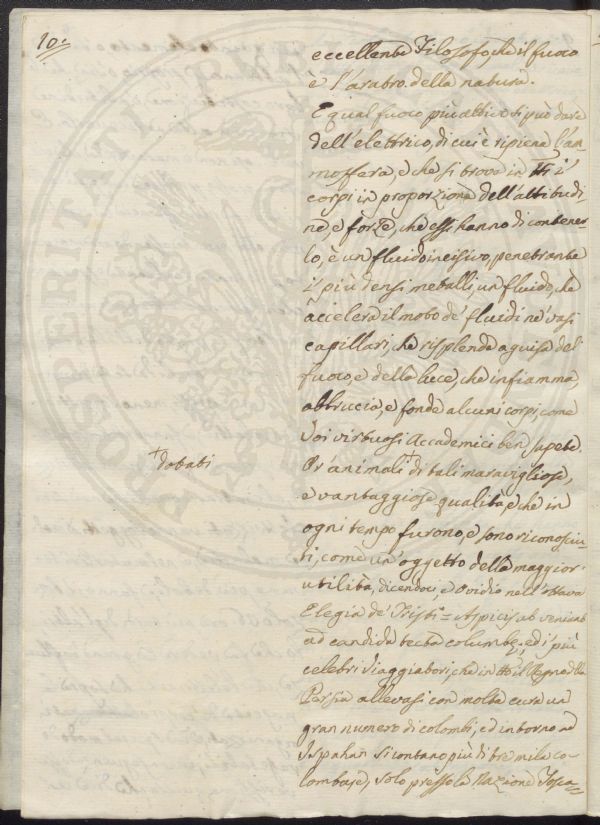 10.
eccellente Filosofo, che il fuoco
è l'aratro della natura.
E qual fuoco più attivo si può dare
dell'elettrico, di cui è ripiena l'at
mosfera, e che si trova in tti i
corpi in proporzione dell'attitudi
ne, e forze, che essi hanno di contener
lo, è un fluido incisivo, penetrante
i più densi metalli, un fluido, che
accelera il moto de' fluidi ne' vasi
capillari, che risplende a guisa del
fuoco, e della luce, che infiamma,
abbruccia, e fonde alcuni corpi, come
Voi virtuosi Accademici ben sapete.
Or'animali + di tali maravigliose,
+ dotati
e vantaggiose qualità, e che in
ogni tempo furono, e sono riconosciu
ti, com'è un'oggetto della maggior
utilità, dicendoci, e Ovidio nell'ottava
Elegia de' Tristi = Aspicis ut veniant
ad candida tecta columbę; ed i più
celebri Viaggiatori, che in tto il Regno della
Persia allevasi con molta cura un
gran numero di colombi, ed intorno ad
Ispahan si contano più di tre mila co-
lombaje, solo presso la Nazione Tosca=